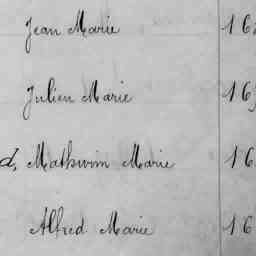 Jean Marie 16
Julien Marie 16
d, Mathurin Marie 16
Alfred Marie 16